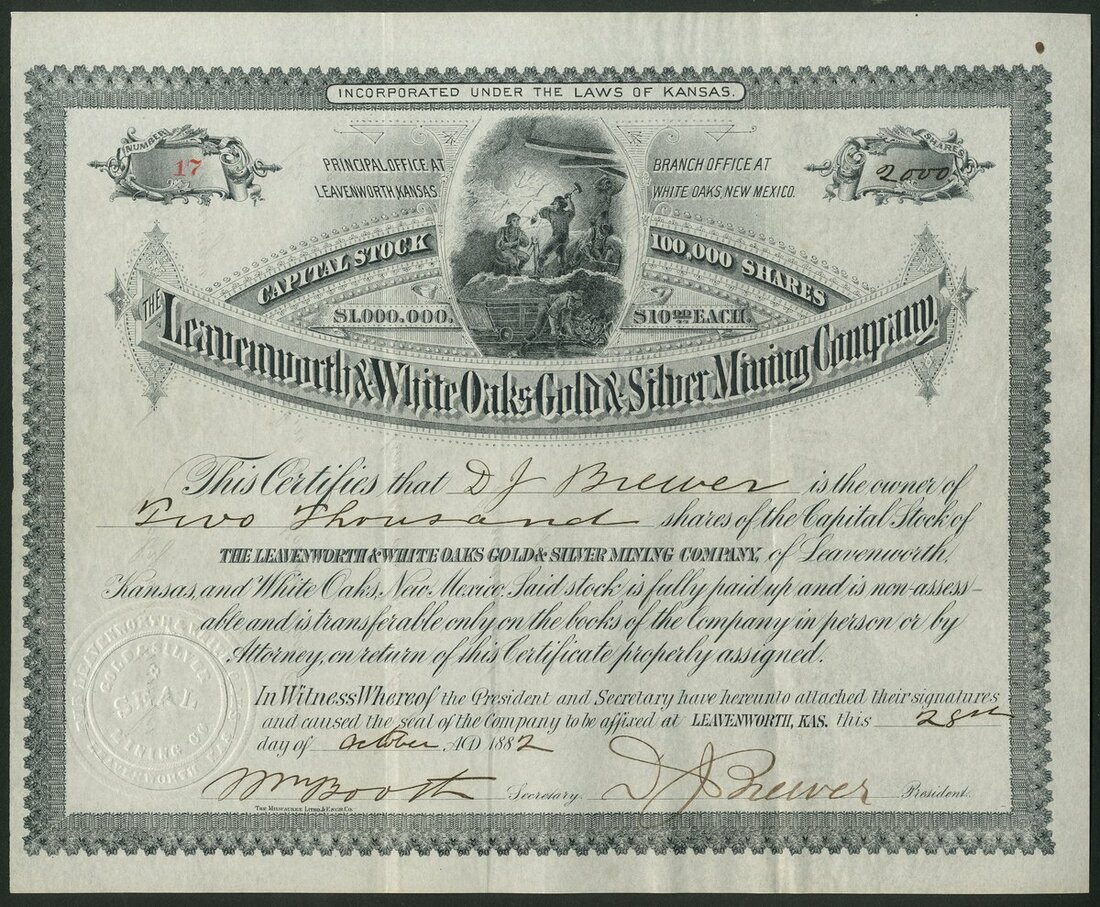 INCORPORATED UNDER THE LAWS OF KANSAS.
NUMBER
17
SHARES
2000
PRINCIPAL OFFICE AT
LEAVENWORTH, KANSAS
BRANCH OFFICE AT
WHITE OAKS, NEW MEXICO.
CAPITAL STOCK
100,000 SHARES
$1.000.000.
$10.00 EACH.
THE Leavenworth & White Oaks Gold & Silver Mining Company.
This Certifies that D J Brewer is the owner of
Two Thousand shares of the Capital Stock of
THE LEAVENWORTH & WHITE OAKS GOLD & SILVER MINING COMPANY, of Leavenworth,
Kansas, and White Oaks, New Mexico. Said stock is fully paid up and is non-assess-
able and is transferable only on the books of the Company in person or by
Attorney, on return of this Certificate properly assigned.
In Witness Whereof the President and Secretary have hereunto attached their signatures
and caused the seal of the Company to be affixed at LEAVENWORTH, KAS. this 28th
day of October AD 1882
Wm Booth Secretary. D J Brewer President.
THE MILWAUKEE LITHO. & ENGR. CO.
THE LEAVENWORTH & WHITE OAKS
GOLD & SILVER
SEAL
MINING CO
LEAVENWORTH, KAS.